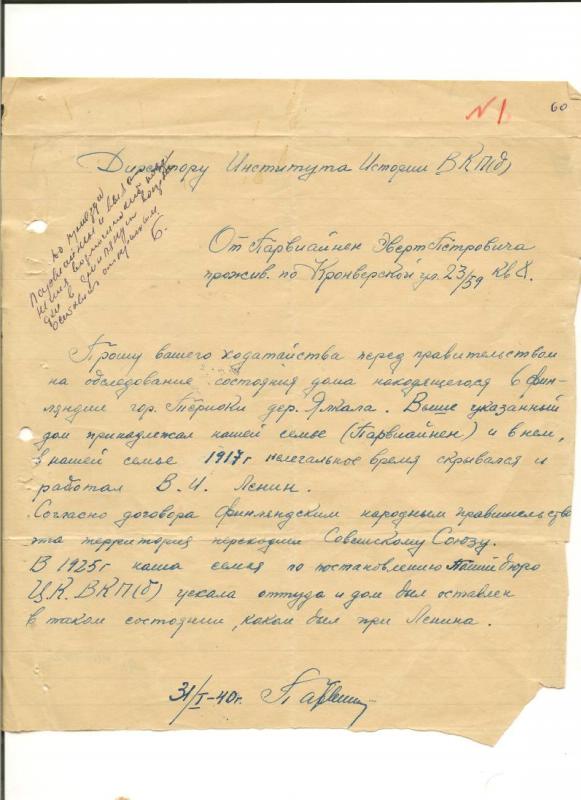 №1
60
Директору Института Истории ВКП(б)
до приезда
Парвиайнен и выяс
в Финляндии
Оставить открытым
Б.
От Парвиайнен Эверт Петровича
прожив. по Кронверской ул. 23/59 кв 8.
Прошу вашего ходатайства перед правительством
на обследование состояния дома находящегося в Фин-
ляндии гор. Териоки дер. Ялкала. Выше указанный
дом принадлежал нашей семье (Парвиайнен) и в нем,
в нашей семье 1917г нелегальное время скрывался и
работал В. И. Ленин.
Согласно договора Финляндским народным правительство
эта территория переходит Советскому Союзу.
В 1925г наша семья по постановлению бюро
Ц.К. ВКП(б) уехала оттуда и дом был оставлен
в таком состоянии, каком был при Ленина.
31/I-40г.